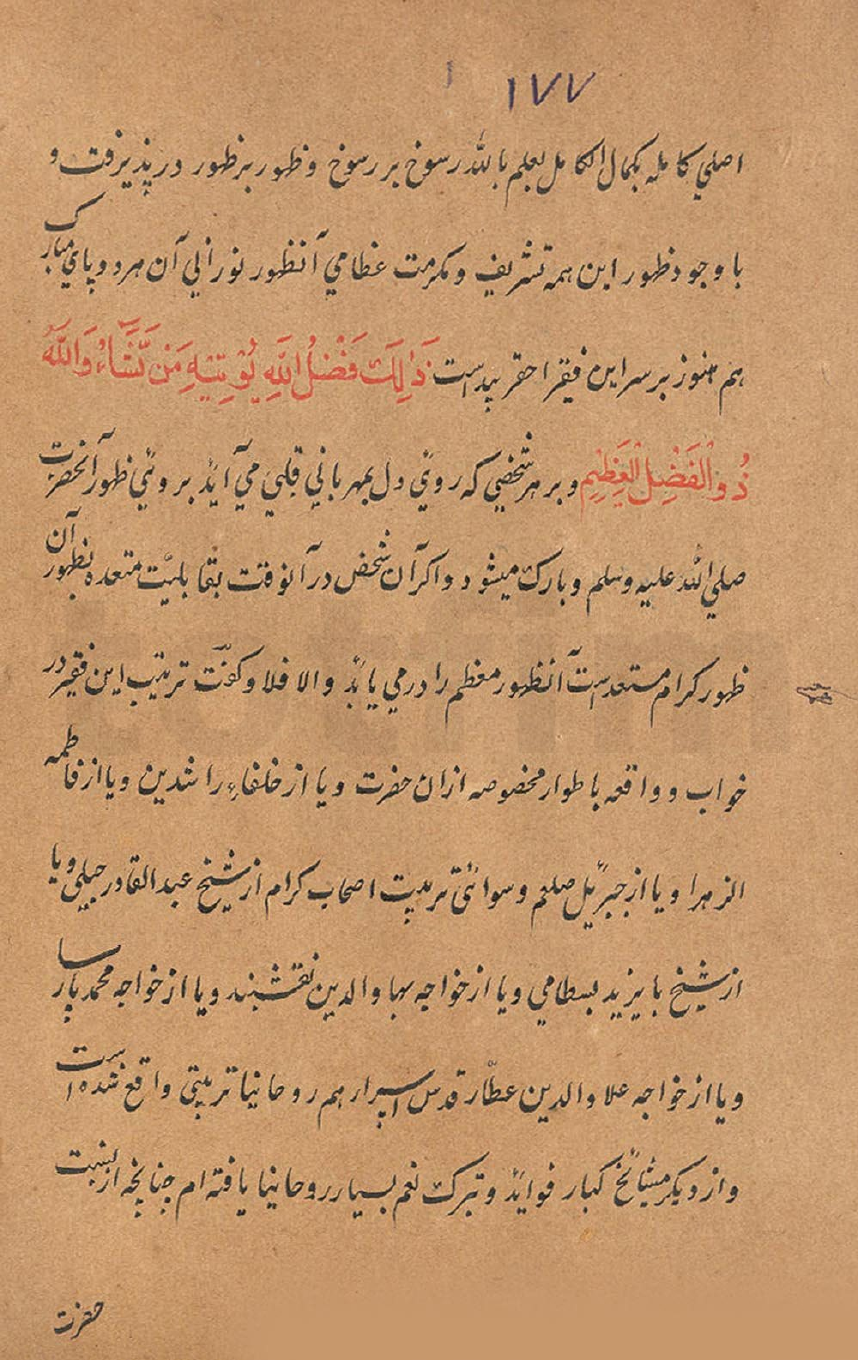 ۱۷۷
اصلي كامله بكمال الكامل لعلم بالله رسوخ بر رسوخ و ظهور بر ظهور در پذيرفت و
با وجود ظهور اين همه تشريف و مكرمت عظامي آنظهور نوراني آن هر دو پاي مبارك
هم هنوز بر سر اين فقير احقر پيداست ذَٰلِكَ فَضْلُ اللهِ يُؤتِيْهِ مَنْ يَّشَاءُ وَاللهُ
ذُو الْفَضْلِ الْعَظِيمِ و بر هر شخصي كه روئ دل بمهرباني قلبي مي آيد بر وئي ظهور آنحضرت
صلي الله عليه وسلم و بارك ميشود و اكر آن شخص در آنوقت بقابليت متعده بظهور آن
ظهور كرام مستعد است آنظهور معظم را در مي يابد و الا فلا و كفت تربيت اين فقير در
خواب و واقعه باطوار مخصوصه ازان حضرت و يا از خلفاء راشدين و يا از فاطمه
الزهرا و يا از جبرئيل صلعم و سوائي تربيت اصحاب كرام از شيخ عبد القادر جيلي و يا
از شيخ بايزيد بسطامي و يا از خواجه بهاوالدين نقشبند و يا از خواجه محمد پارسا
و يا از خواجه علاوالدين عطّار قدس اسرارهم روحانيا تربيتي واقع شده است
و از ديكر مشائخ كبار فوائد و تبرك نعم بسيار روحانيا يافته ام چنانچه از نسبت
حضرت